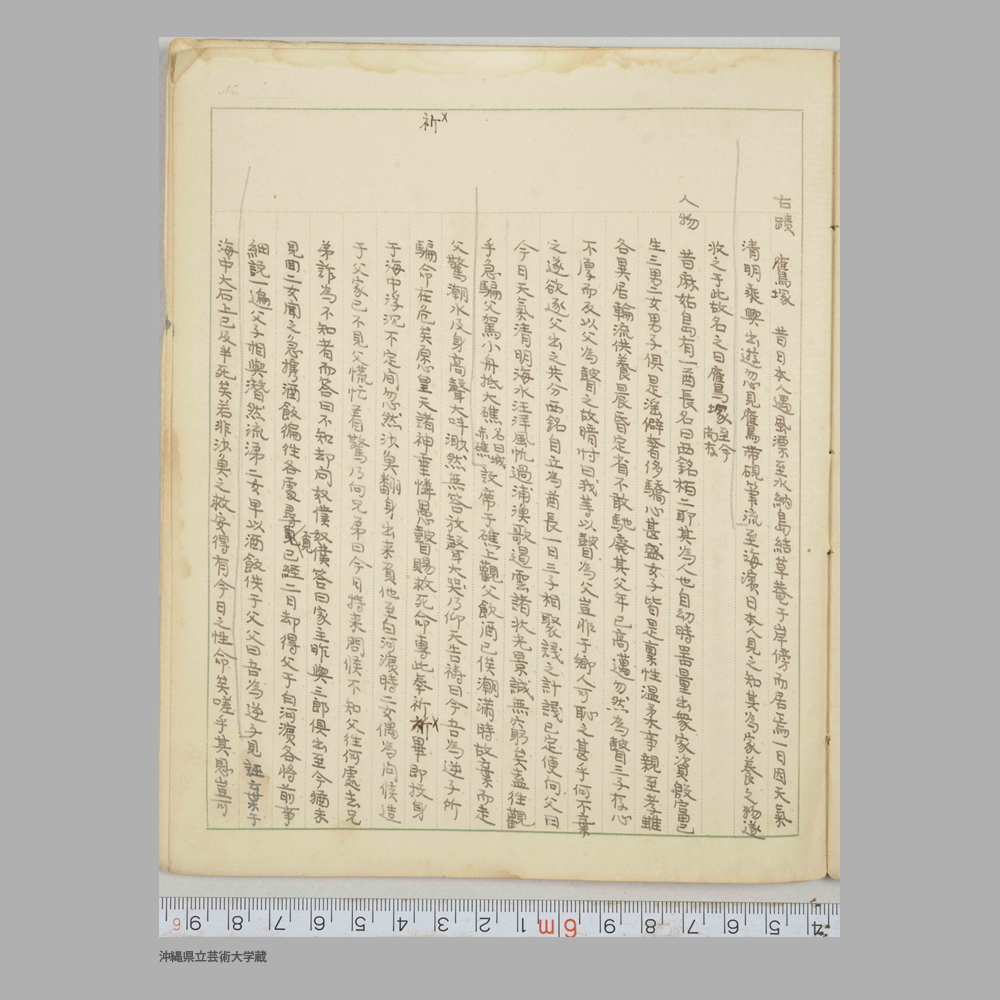 祈×
古蹟　鷹塚　昔日本人遇風漂至水納島結草菴于岸傍而居焉一日因天氣
清明乘興出遊忽見鷹帶硯筆流至海濱日本人見之知其為家養之物遂
收之于此故名之曰鷹塚至今尚存
人物　昔麻姑島有一酋長名曰西銘栢二耶其為人也自幼時器量出衆家資殷富
生三男二女男子俱是淫僻奢侈驕心甚盛女子皆是稟性溫柔事親至孝雖
各異居輪流供養晨昏定省不敢馳廢其父年已高邁忽然為瞽三子存心
不厚而反以父為瞽之故暗忖曰我等以瞽為父豈非于鄉人可恥之甚乎何不棄
之遂欲逐父出之共分西銘自立為酋長一日三子相聚議之計議已定便向父曰
今日天氣清明海水汪洋風帆過浦漁歌遏雲諸狀光景誠無窮矣盍往觀
乎急騙父駕小舟抵大礁名曰城赤礁設席于礁上觀父飲酒已俟潮滿時故棄而走
父驚潮水及身高聲大呌漱然無答放聲大哭乃仰天告禱曰今吾為逆子所
騙命在危矣愿皇天諸神垂憐愚瞽賜救死命專此奉祈祈×畢即投身
于海中浮沉不定間忽然沙魚翻身出来負他至白河濱時二女偶為問候造
于父家已不見父慌忙着驚乃向兄弟曰今日特来問候不知父往何處去兄
弟詐為不知者而答曰不知却向奴僕奴僕答曰家主昨與三郎俱出至今猶未
見回二女聞之急携酒飯徧往各處尋覓已經二日却得父于白河濱各將前事
細説一遍父子相與潸然流涕二女早以酒飯供于父父曰吾為逆子見誑棄于
海中大石上已及半死矣若非沙魚之救安得有今日之性命矣嗟乎其恩豈可
9 8 7 6 5 4 3 2 1 6m 9 8 7 6 5 4
沖縄県立芸術大学蔵